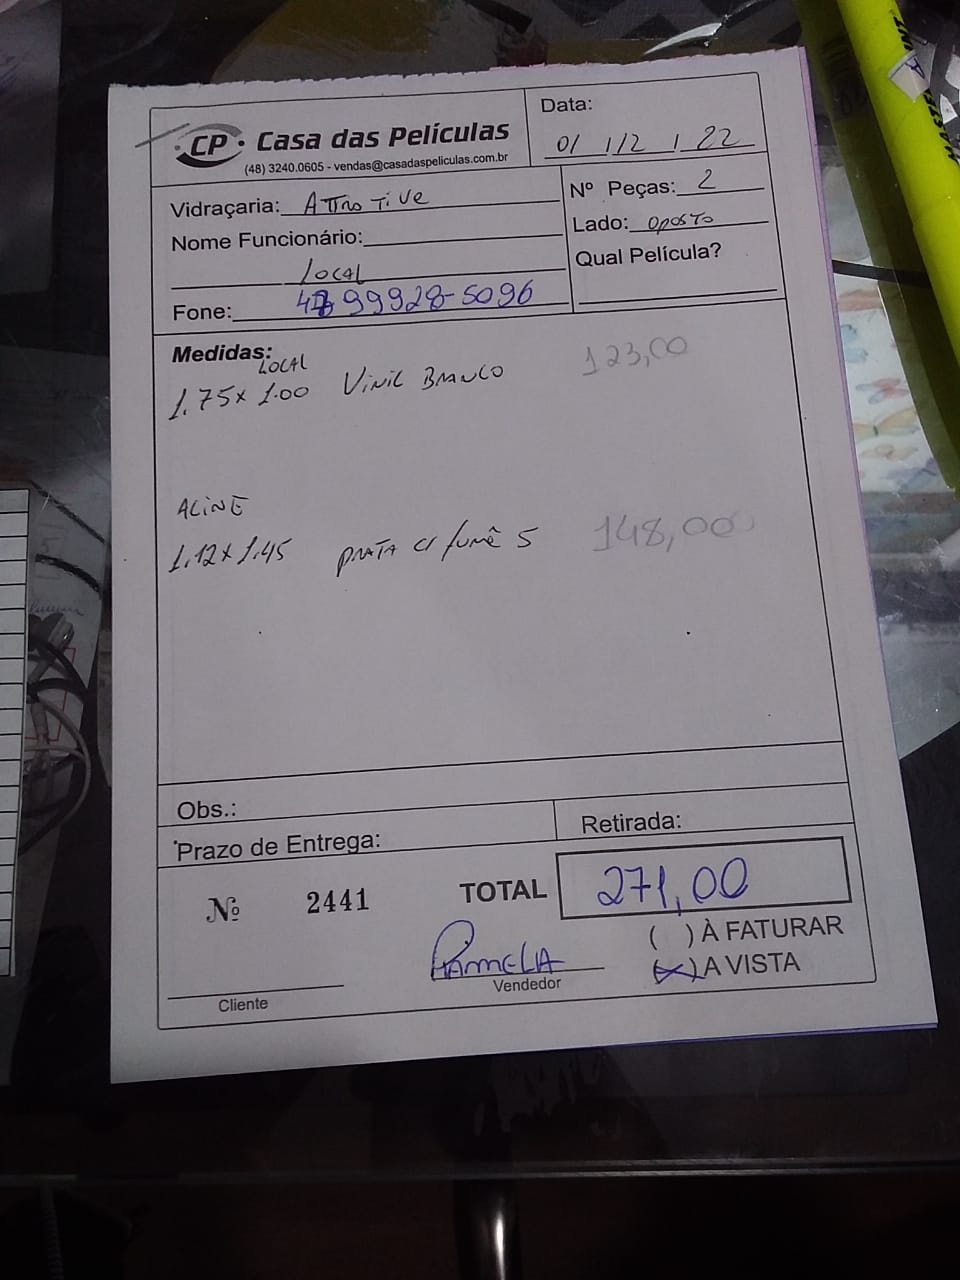 CP. Casa das Películas
(48) 3240.0605 - vendas@casadaspeliculas.com.br
Data:
01 / 12 / 22
Vidraçaria: ATTROTIVE
Nº Peças: 2
Nome Funcionário:
Lado: OPOSTO
LOCAL
Qual Película?
Fone: 48 99928-5096
Medidas:
LOCAL
1.75 x 1.00 VINIL BRANCO 123,00
ALINE
1.12 x 1.45 PRATA C/ fumê 5 148,00
Obs.:
Prazo de Entrega:
Retirada:
Nº 2441
TOTAL 271,00
( ) À FATURAR
(X) A VISTA
PAMELA
Cliente
Vendedor